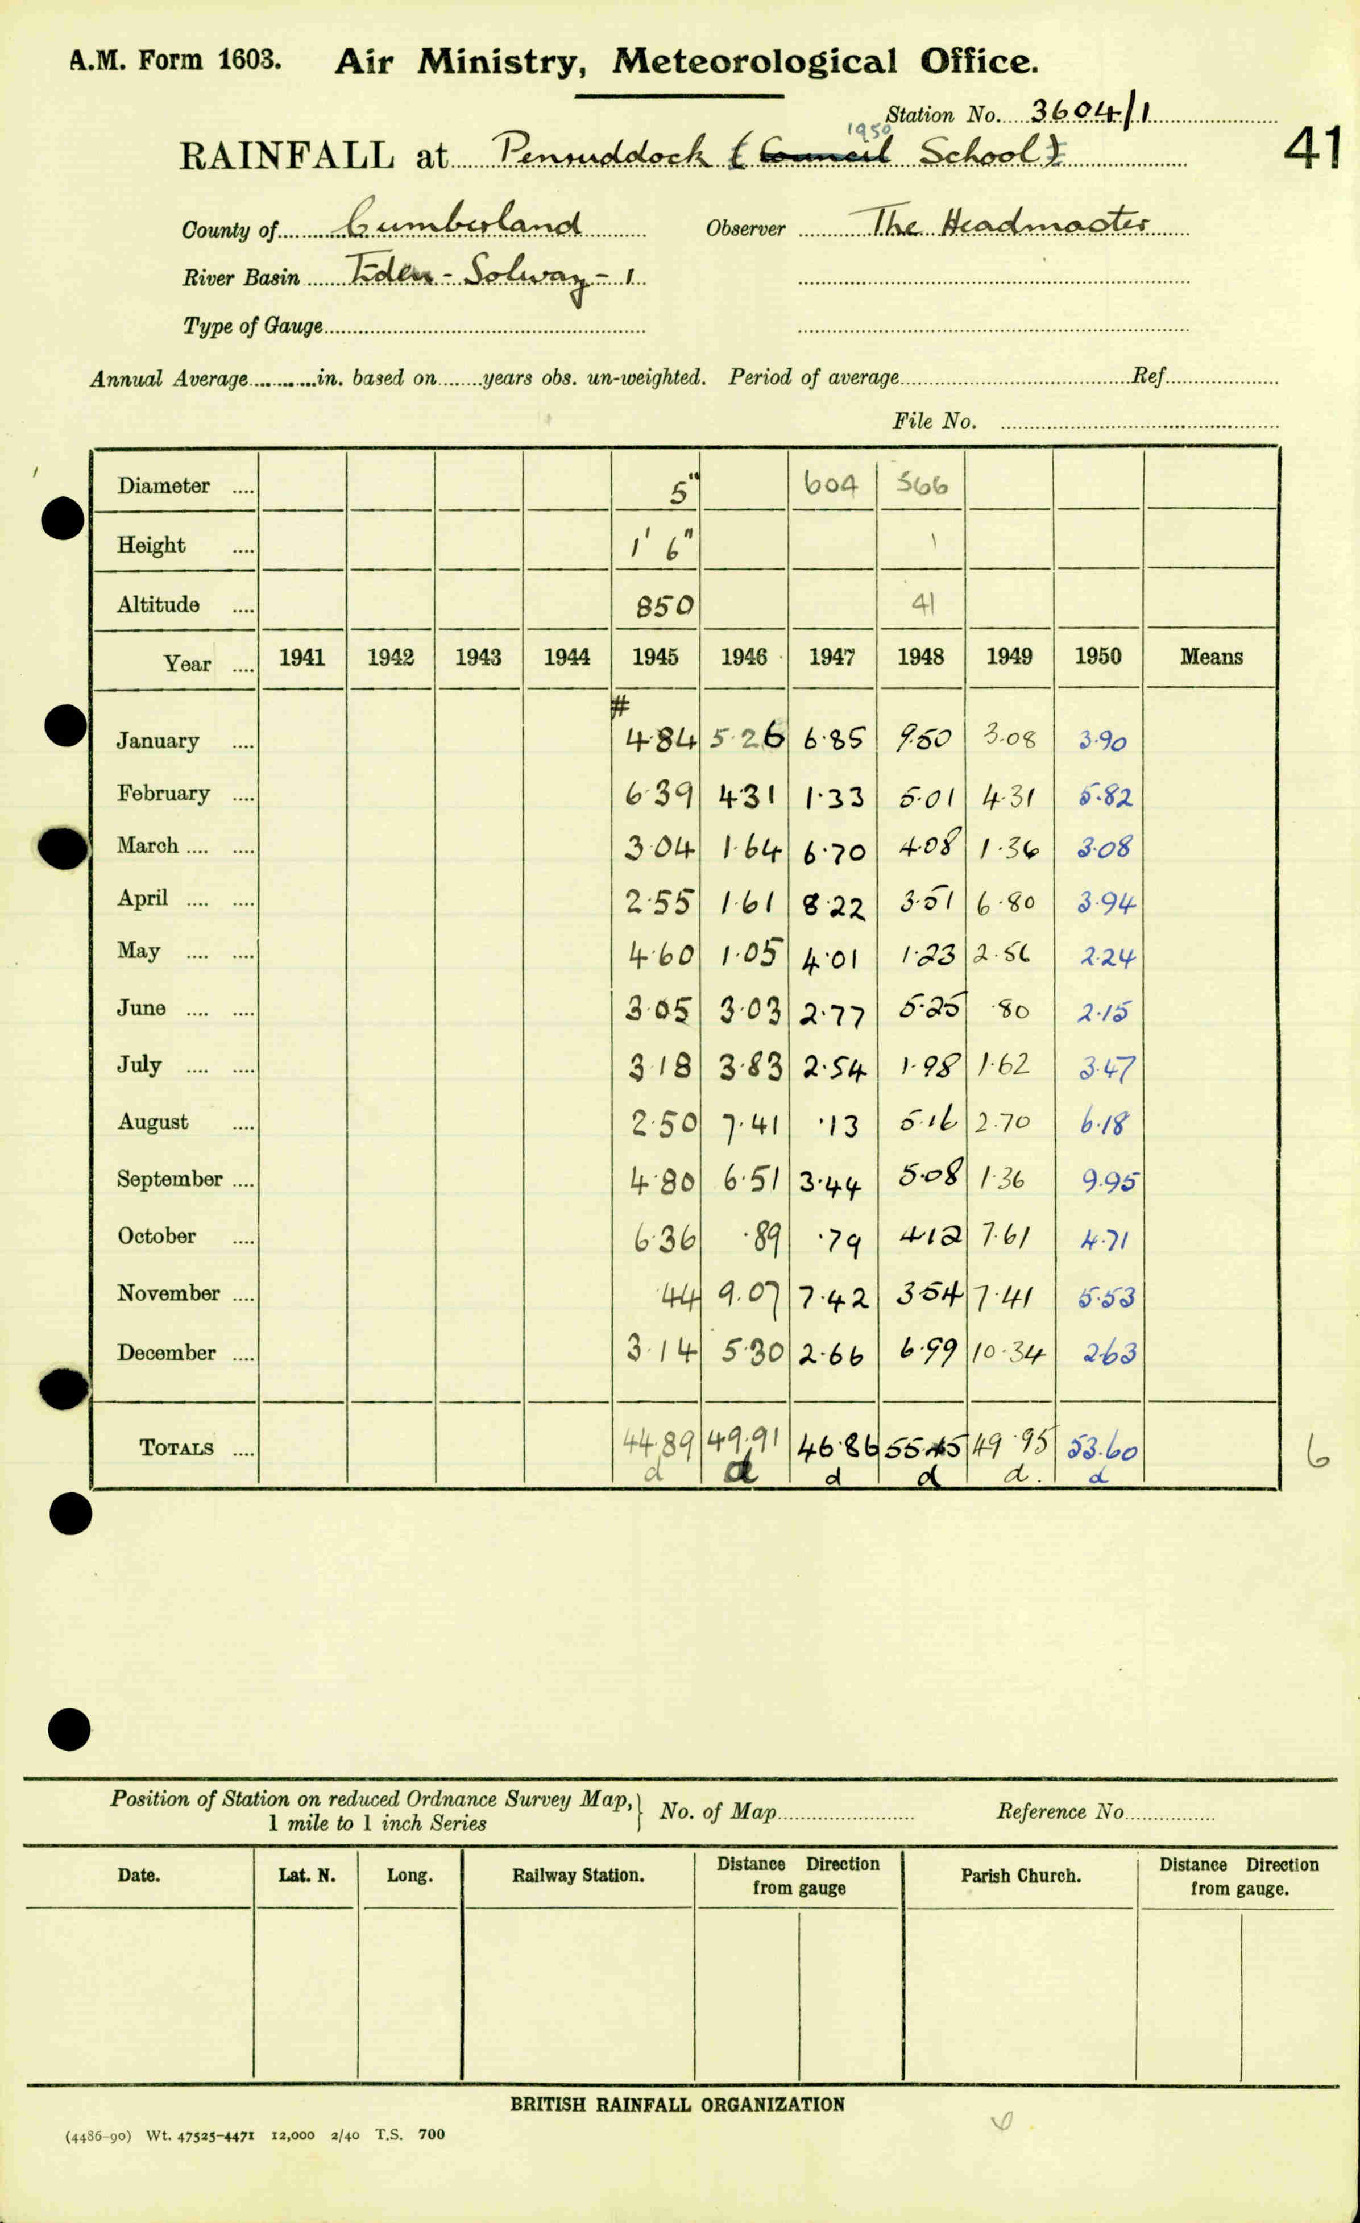 A.M. Form 1603. Air Ministry, Meteorological Office.
Station No. 3604/1
1950
RAINFALL at Penruddock (Council School)
41
County of Cumberland Observer The Headmaster
River Basin Eden - Solway - 1
Type of Gauge
Annual Average in. based on years obs. un-weighted. Period of average Ref.
File No.
Diameter .... 5" 604 566
Height .... 1' 6" 1
Altitude .... 850 41
Year .... 1941 1942 1943 1944 1945 1946 1947 1948 1949 1950 Means
#
January .... 4·84 5·26 6·85 9·50 3·08 3·90
February .... 6·39 4·31 1·33 5·01 4·31 5·82
March .... .... 3·04 1·64 6·70 4·08 1·36 3·08
April .... .... 2·55 1·61 8·22 3·51 6·80 3·94
May .... .... 4·60 1·05 4·01 1·23 2·56 2·24
June .... .... 3·05 3·03 2·77 5·25 ·80 2·15
July .... .... 3·18 3·83 2·54 1·98 1·62 3·47
August .... 2·50 7·41 ·13 5·16 2·70 6·18
September .... 4·80 6·51 3·44 5·08 1·36 9·95
October .... 6·36 ·89 ·79 4·12 7·61 4·71
November .... ·44 9·07 7·42 3·54 7·41 5·53
December .... 3·14 5·30 2·66 6·99 10·34 2·63
TOTALS .... 44·89 49·91 46·86 55·45 49·95 53·60
d d d d d. d
6
Position of Station on reduced Ordnance Survey Map,} No. of Map Reference No.
1 mile to 1 inch Series
Date. Lat. N. Long. Railway Station. Distance Direction from gauge Parish Church. Distance Direction from gauge.
BRITISH RAINFALL ORGANIZATION
(4486-90) Wt. 47525-4471 12,000 2/40 T.S. 700